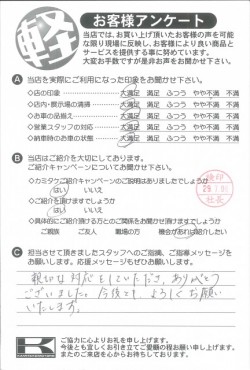 軽
お客様アンケート
当店では、お買い上げ頂いたお客様の声を可能
な限り現場に反映し、お客様により良い商品と
サービスを提供する事に努めています。
大変お手数ですが是非お声をお聞かせ下さい。
A 当店を実際にご利用になった印象をお聞かせ下さい。
◇店の印象 大満足 満足 ふつう やや不満 不満
◇店内・展示場の清掃 大満足 満足 ふつう やや不満 不満
◇お車の品揃え 大満足 満足 ふつう やや不満 不満
◇営業スタッフの対応 大満足 満足 ふつう やや不満 不満
◇納車時のお車の状態 大満足 満足 ふつう やや不満 不満
B 当店はご紹介を大切にしてあります。
ご紹介キャンペーンについてお聞かせ下さい。
◇カミタケご紹介キャンペーンのご説明はありましたでしょうか
はい いいえ
◇ご紹介を頂けますでしょうか
はい いいえ
◇具体的にご紹介頂ける方とのご関係をお聞かせ頂けますでしょうか
ご親族 ご友人 職場の方 機会があれば紹介したい
社長
C 担当させて頂きましたスタッフへのご指摘、ご指導メッセージを
お願いします。応援メッセージもぜひお願いします。
親切な対応をしていただき、ありがとう
ございました。今後とも、よろしくお願い
いたします。
K
ご協力に心よりお礼を申し上げます。
今後とも宜しくお引き立てご愛顧の程お願い申し上げます。
またのご来店を心からお待ちしております。